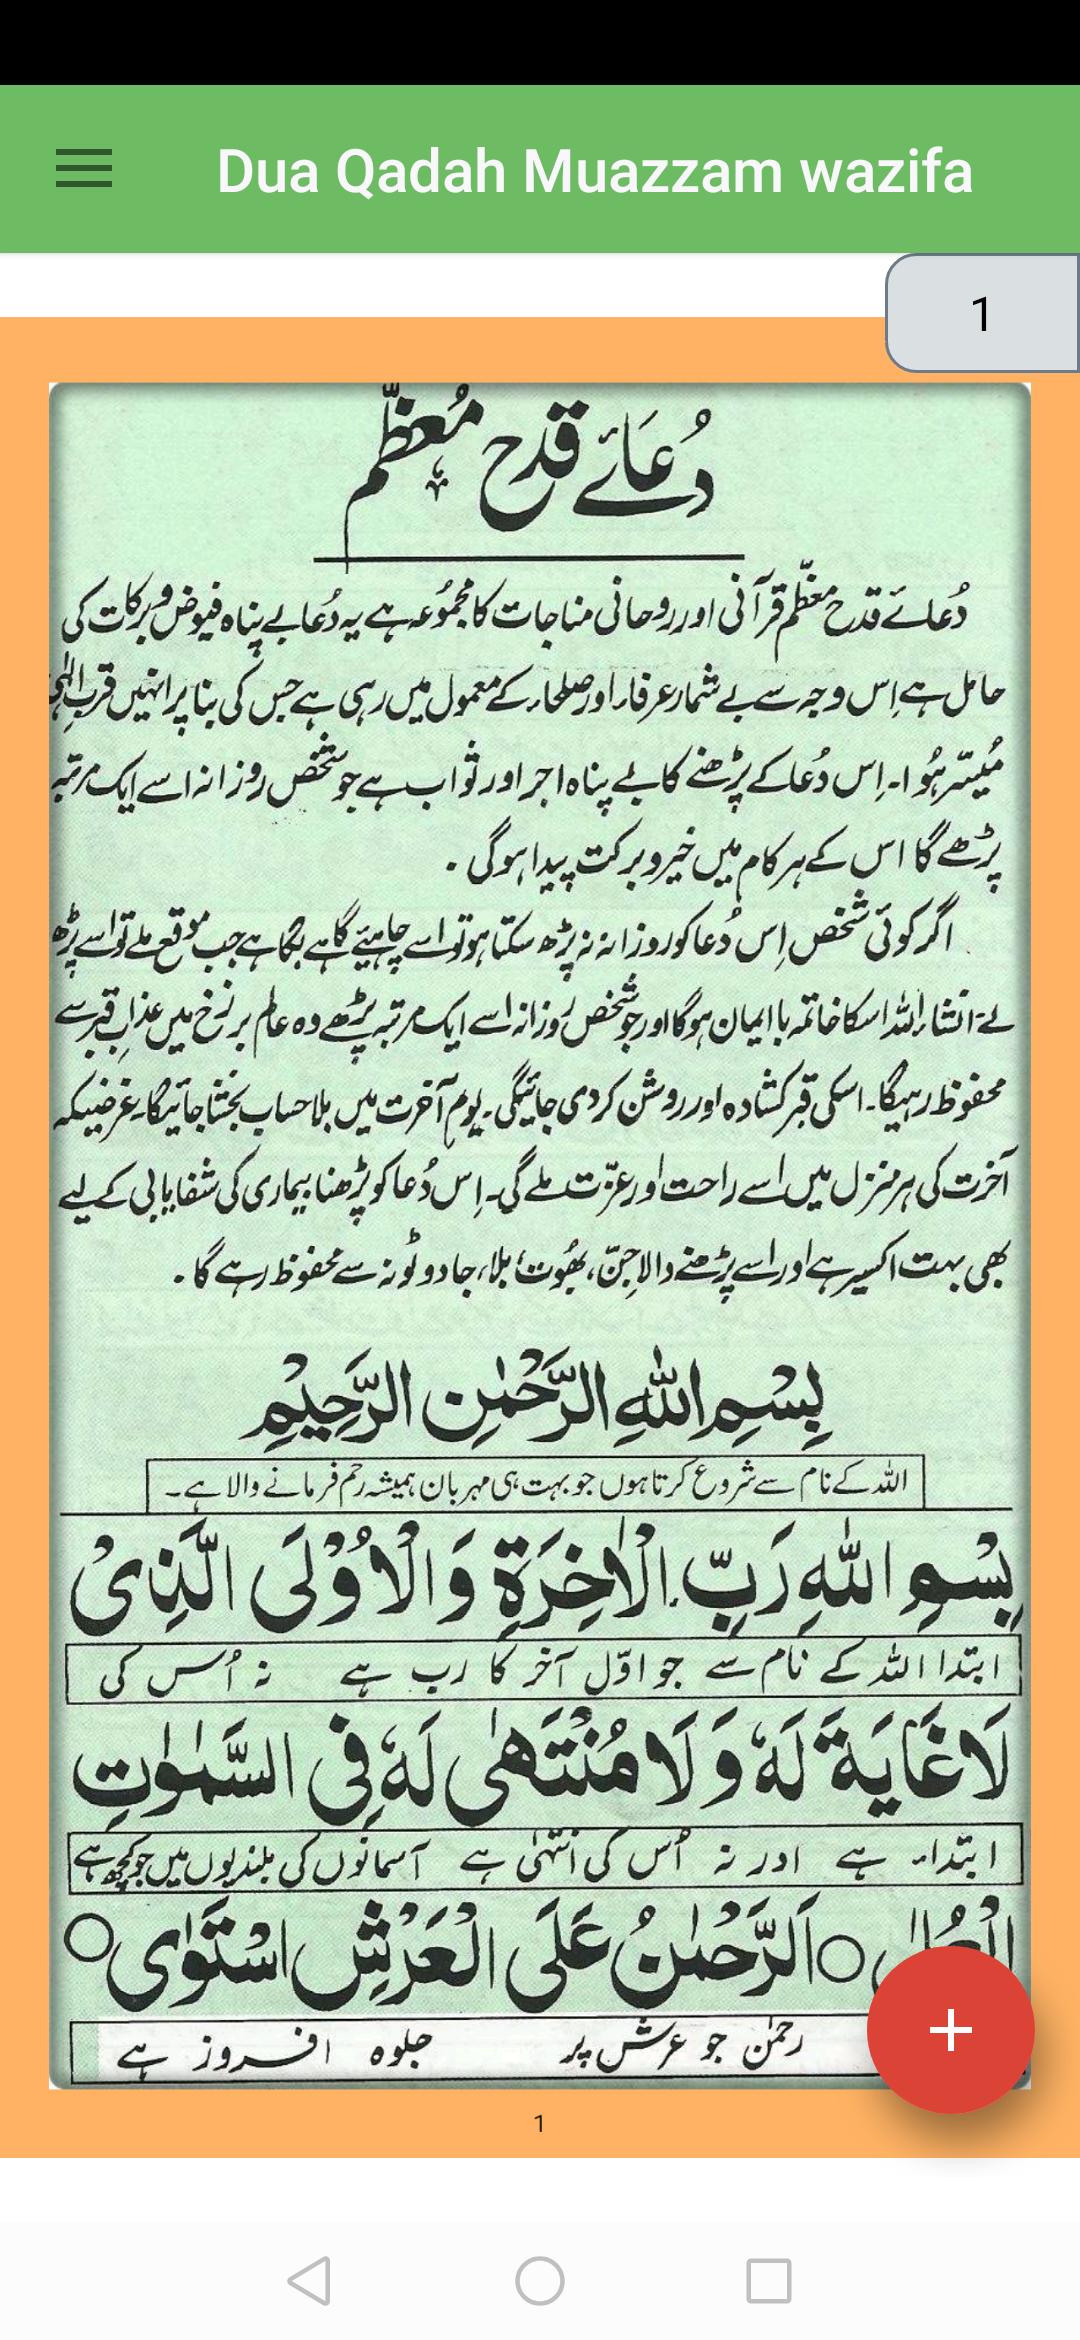 Dua Qadah Muazzam wazifa
1
دُعائے قدح معظّم
دُعائے قدح معظّم قرآنی اور روحانی مناجات کا مجموُعہ ہے یہ دُعا بے پناہ فیوض و برکات کی
حامل ہے اِس وجہ سے بے شمار عرفاء اور صلحاء کے معمول میں رہی ہے جس کی بنا پر انہیں قربِ الٰہی
مُیسّر ہُوا۔ اِس دُعا کے پڑھنے کا بے پناہ اجر اور ثواب ہے جو شخص روزانہ اسے ایک مرتبہ
پڑھے گا اس کے ہر کام میں خیر و برکت پیدا ہو گی ۔
اگر کوئی شخص اِس دُعا کو روزانہ نہ پڑھ سکتا ہو تو اسے چاہیئے گاہے بگاہے جب موقع ملے تو اسے پڑھ
لے۔ انشاء اللہ اسکا خاتمہ با ایمان ہوگا اور جو شخص روزانہ اسے ایک مرتبہ پڑھے وہ عالم برزخ میں عذابِ قبر سے
محفوظ رہیگا۔ اسکی قبر کشادہ اور روشن کر دی جائیگی۔ یوم آخرت میں بلا حساب بخشا جائیگا۔ غرضیکہ
آخرت کی ہر منزل میں اسے راحت اور عزّت ملے گی۔ اِس دُعا کو پڑھنا بیماری کی شفایابی کے لیے
بھی بہت اکسیر ہے اور اسے پڑھنے والا جِنّ، بھُوت، بلا، جادو ٹونہ سے محفوظ رہے گا ۔
بِسْمِ اللّٰهِ الرَّحْمٰنِ الرَّحِيْمِ
اللہ کے نام سے شروع کرتا ہوں جو بہت ہی مہربان ہمیشہ رحم فرمانے والا ہے۔
بِسْمِ اللّٰهِ رَبِّ الْاٰخِرَةِ وَالْاُوْلَى الَّذِىْ
ابتدا اللہ کے نام سے جو اوّل آخر کا رب ہے نہ اُس کی
لَا غَايَةَ لَهٗ وَلَا مُنْتَهٰى لَهٗ فِى السَّمٰوٰتِ
ابتداء ہے اور نہ اُس کی انتہیٰ ہے آسمانوں کی بلندیوں میں جو کچھ ہے
الْعُلٰى ○ اَلرَّحْمٰنُ عَلَى الْعَرْشِ اسْتَوٰى ○
رحمٰن جو عرش پر جلوہ افروز ہے
1